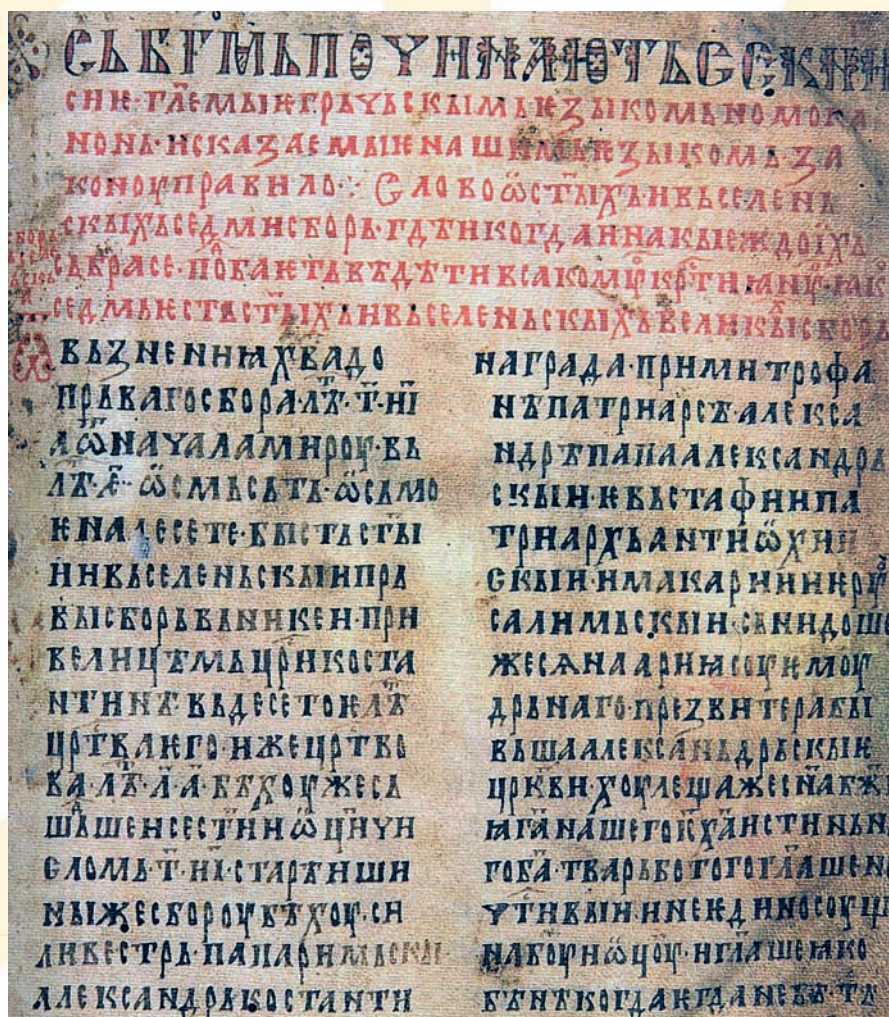 СЬ БГ҃МЬ ПОЧИНАЮТЬ СЕ КНИ
сиѥ· гл҃ѥмыѥ грьчьскымь ѥзыкомь номока
нонь· исказаѥмыѥ нашимь ѥзыкомь· за
коноу правило·:· Слово ѡ ст҃ыхь и вьселень
скыхь седми сборь· гдѣ и когда и на кыежо ихь
сьбра се· побаѥть вѣдѣти всакомꙋ
седмь ѥсть ст҃ыхь и вьселеньскыхь великыи сборь
вьзнении ха҃ до
прьваго сбора· лѣ҃· т҃· и҃ı
начала мироу· вь
лѣ҃· ѡсмьсьть· ѡсьмо
ѥ на десете· бысть ст҃ы
и и вьселеньскыи прь
вы сборь вь никеи· при
велицѣмь цр҃и коста
нтинѣ· вь десетоѥ лѣ҃
цр҃тва ѥго· иже цр҃тво
ва· лѣ҃· л҃· а҃· бѣхоу же сь
шьше и се ст҃ии ѡц҃и чи
сломь· т҃· иı҃· старѣиши
ны же сбороу бѣхоу· си
ливестрь· папа римьскы
александрь костанти
награда· при митрофа
нѣ патриарсѣ· алекса
ндрѣ папа александрь
скыи· ѥвьстафии па
триархь антиѡхии
скыи· и макарии иѥроу
салимьскыи· снидоше
же се на ариꙗ соуѥмоу
дрьнаго· презвитера бы
вьша александрьскыѥ
цр҃кви· хоулеща же сн҃а бж҃
ꙗ га҃ нашего іс҃ ха҃ истиньн
го ба҃· тварь бо того гл҃аше
чт҃ивыи· и не ѥдиносоущ
на боу и ѡц҃оу· и гл҃аше ꙗко
бѣ нѣкогда ѥгда не бѣ·